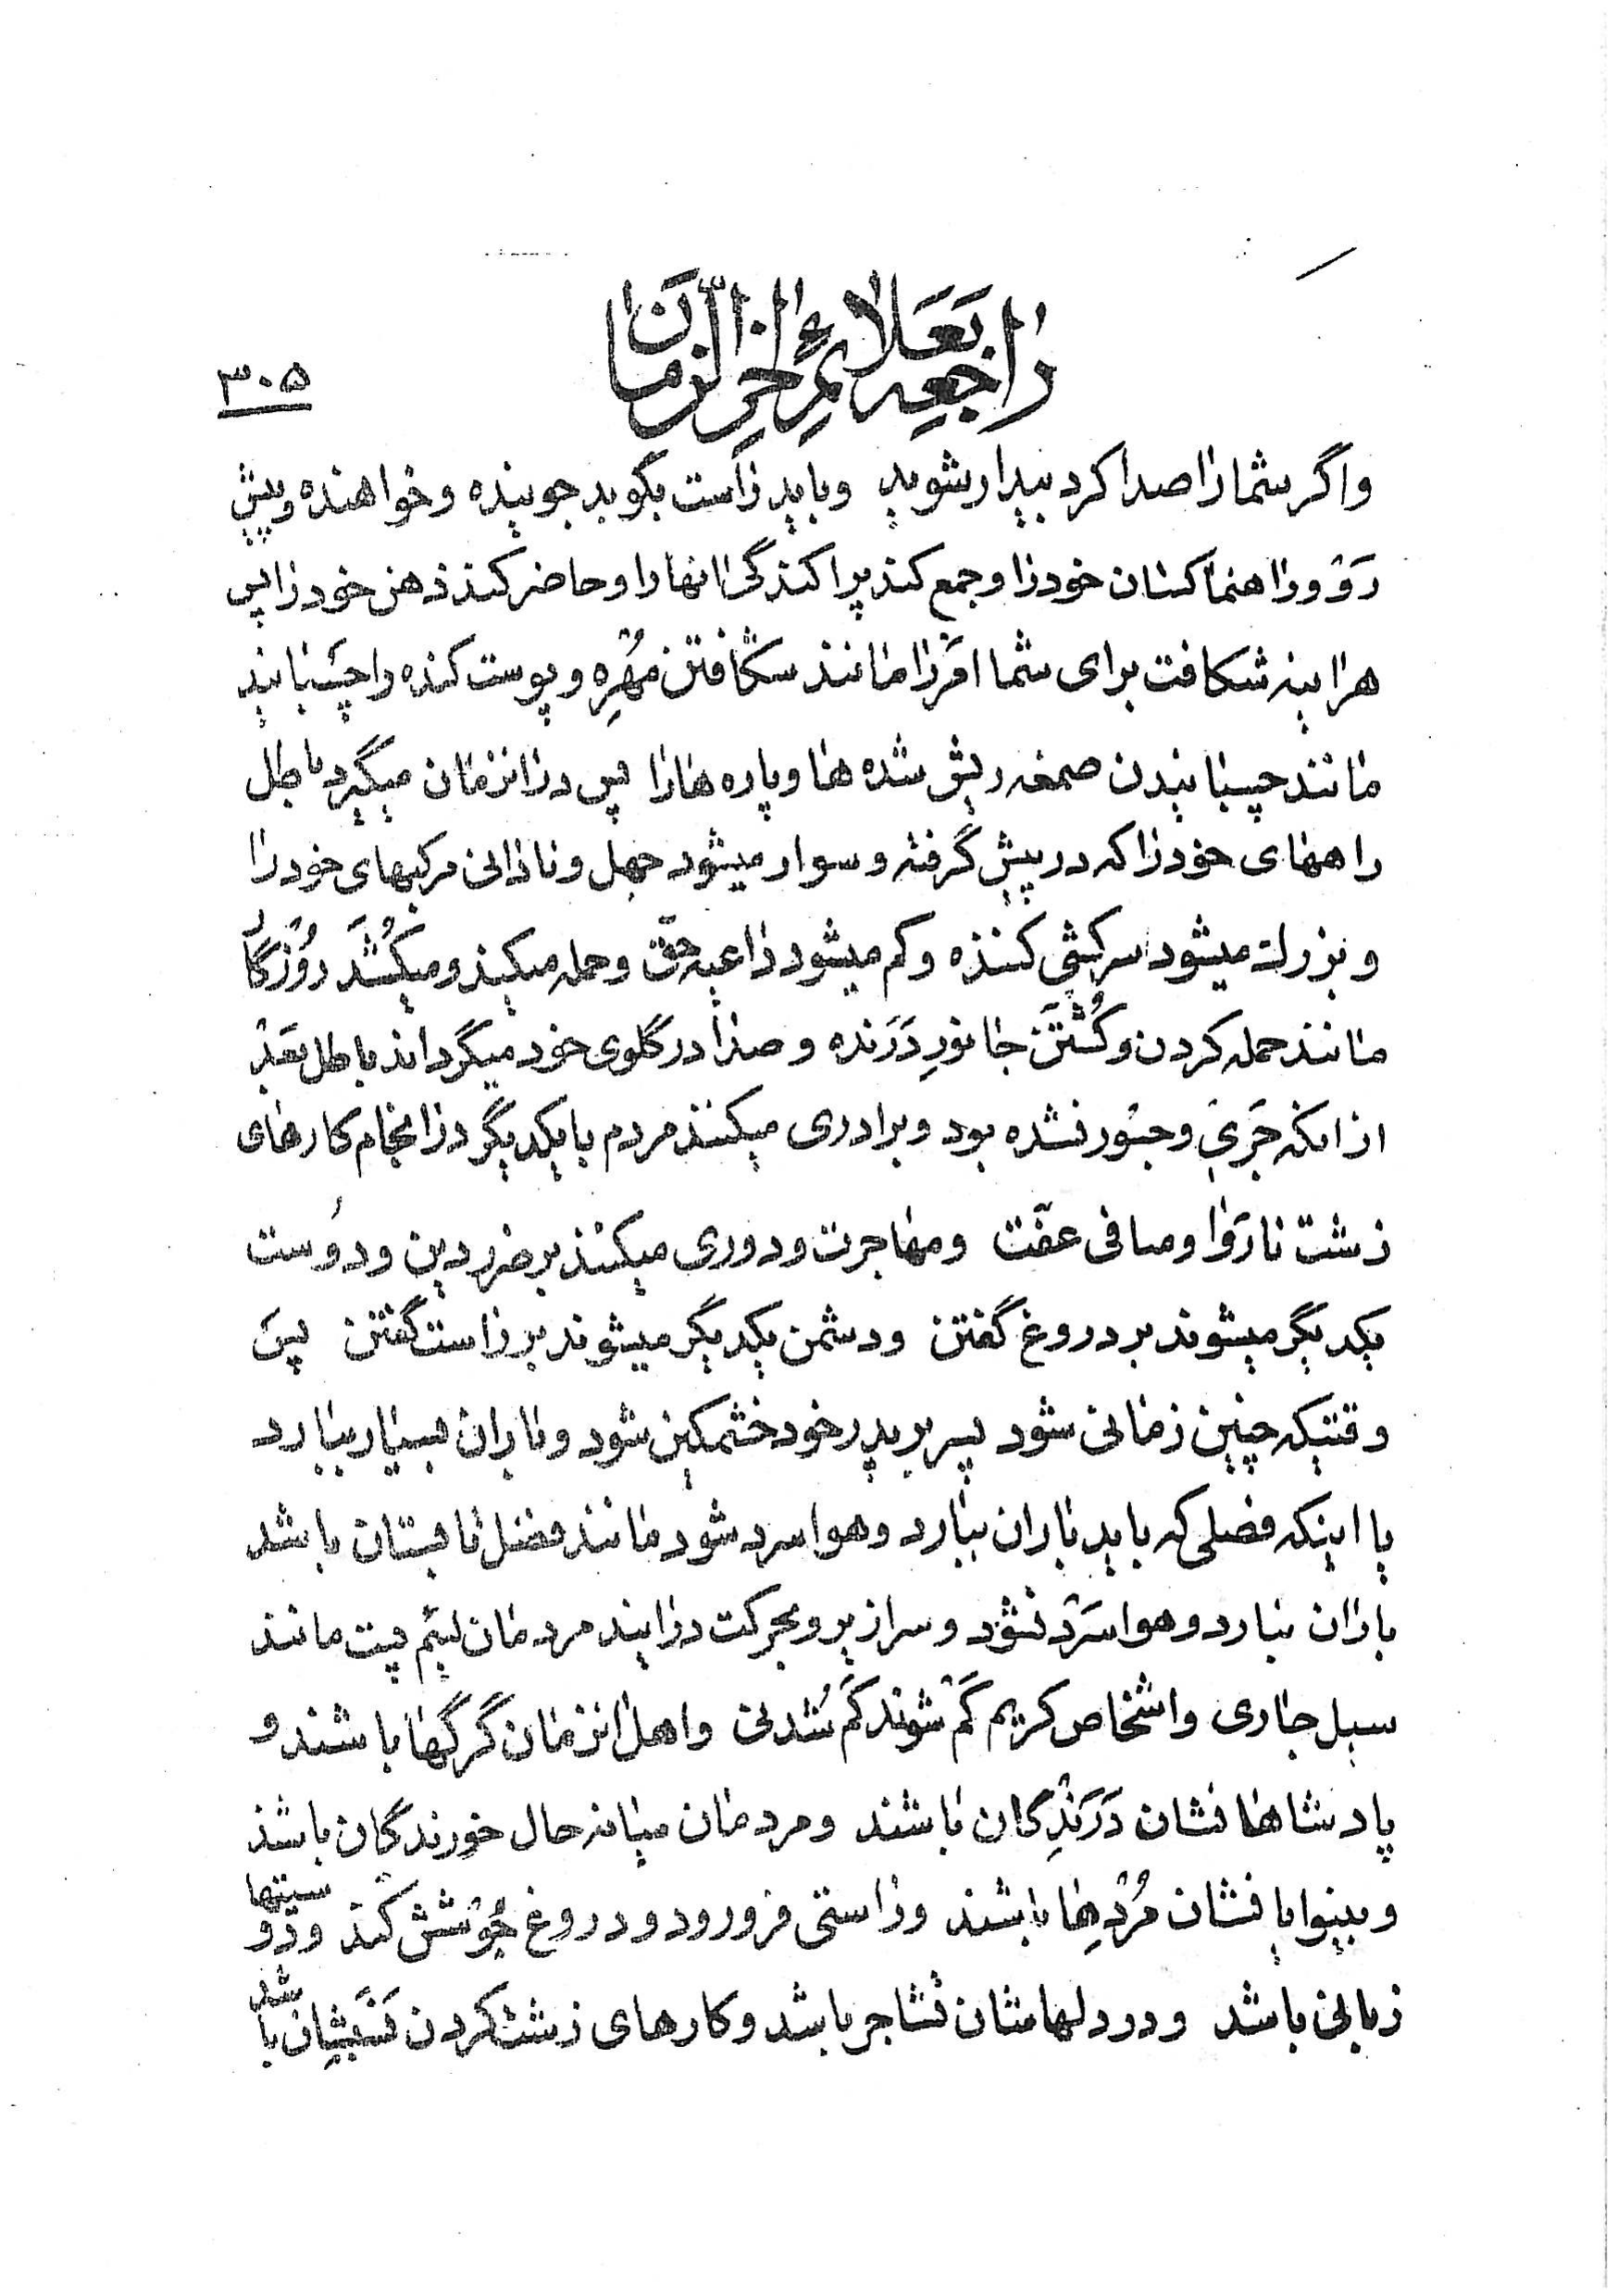 راجعه بعلائم آخر الزمان
۳۰۵
و اگر شما را صدا کرد بیدار شوید و باید راست بگوید جوینده و خواهنده و پیش
رَوْ و راهنما کسان خود را و جمع کند پراکندگی انها را و حاضر کند ذهن خود را پس
هراینه شکافت برای شما امر را مانند شکافتن مُهرِه و پوست کنده را چسبانید
مانند چسبانیدن صمغه ریش شده ها و پاره ها را پس در انزمان میگیرد باطل
راههای خود را که در پیش گرفته و سوار میشود جهل و نادانی مرکبهای خود را
و بزرك میشود سرکشی کننده و کم میشود داعیه حق و حمله میکند و میکُشَد روُزگار
مانند حمله کردن و کُشتَن جانورِ دَرَنده و صدا در گلوی خود میگرداند باطل بَعْد
از انکه جَریِ و جسور نشده بود و برادری میکنند مردم با یکدیگر در انجام کارهای
زشت نارَوا و منافی عفّت و مهاجرت و دوری میکنند بر ضرر دین و دوُست
یکدیگر میشوند بر دروغ گفتن و دشمن یکدیگر میشوند بر راست گفتن پس
وقتیکه چنین زمانی شود پسر بر پدر خود خشمگین شود و باران بسیار ببارد
یا اینکه فصلی که باید باران ببارد و هوا سرد شود مانند فصل تابستان باشد
باران نبارد و هوا سَرْد نشوُد و سرازیر و بحرکت درایند مردمان لئیم پست مانند
سیل جاری و اشخاص کریم کَمْ شوند کَم شُدنی و اهل انزمان گرگها باشند و
پادشاهانشان دَرَنْدِگان باشند و مردمان میانه حال خورندگان باشند
و بینوایانشان مُرْدِها باشند و راستی فرو رود و دروغ جُوشش کند و دو ستیها
زبانی باشد و در دلهاشان تشاجر باشد و کارهای زشت کردن نَسَبشِان با شد